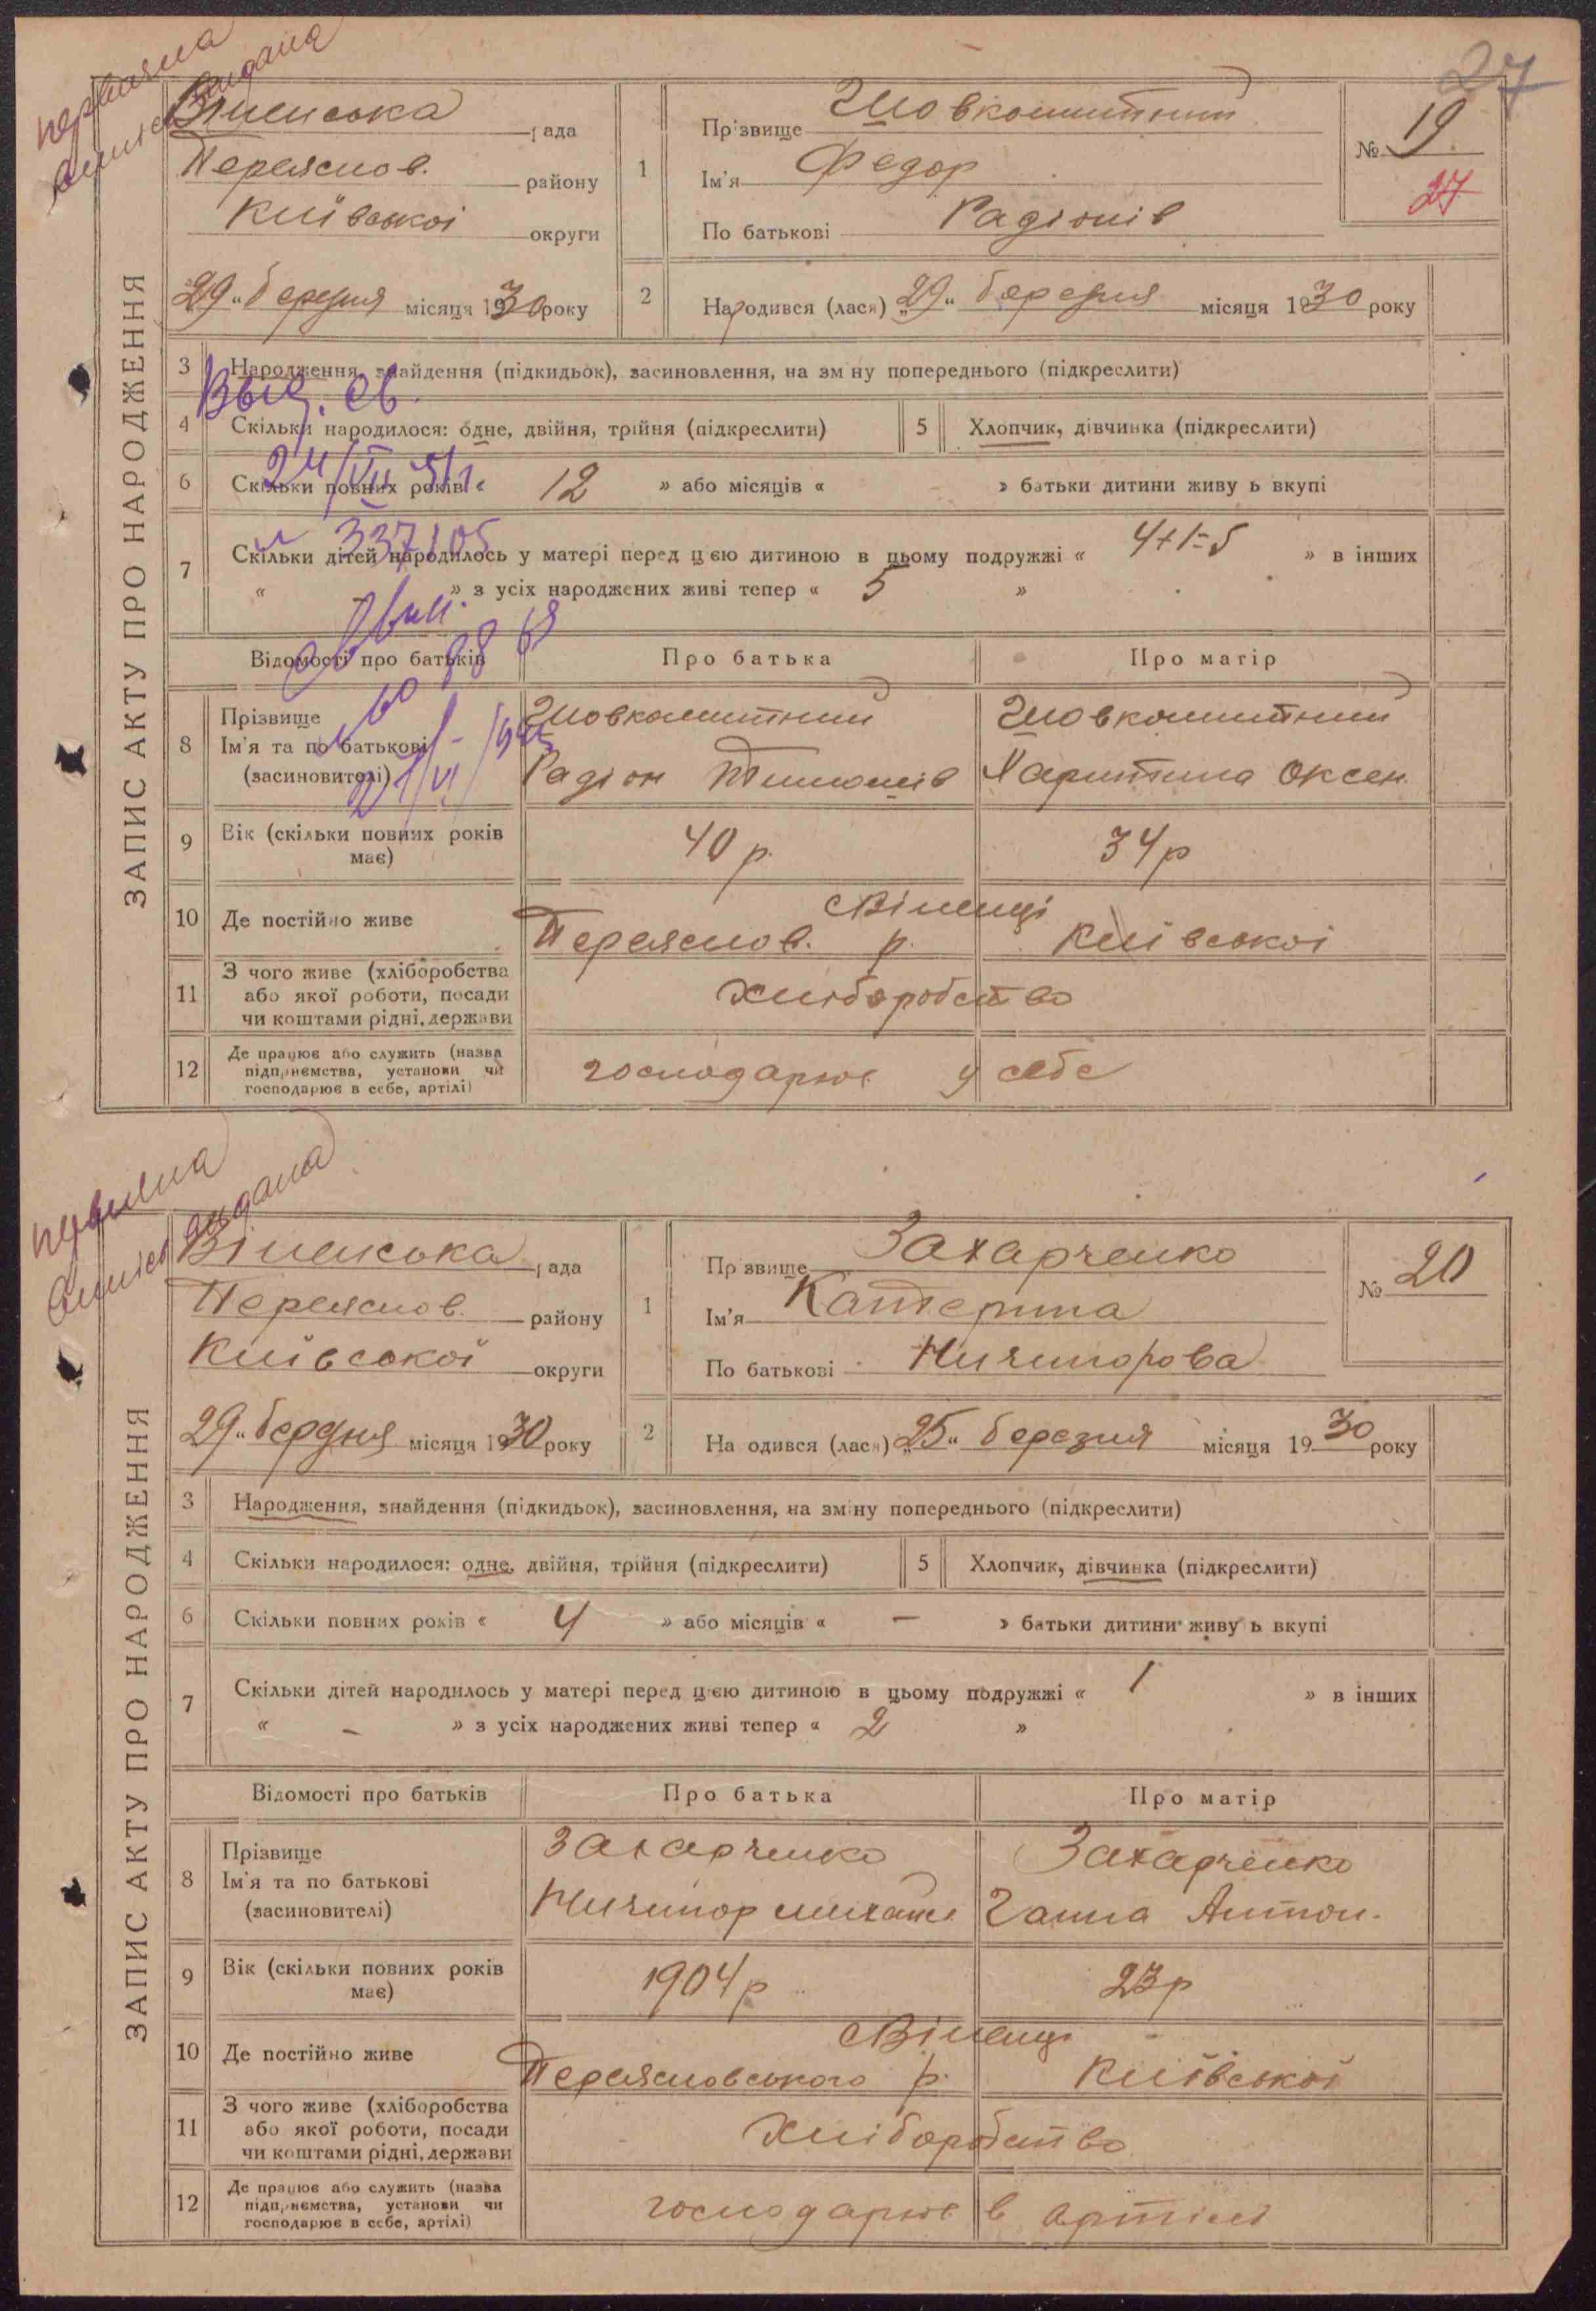 27
ЗАПИС АКТУ ПРО НАРОДЖЕННЯ
Віненська рада
Переяслов. району
Київської округи
1
Прізвище Шовкоплитний
Ім'я Федор
По батькові Радіонів
№ 19
27
„29“ березня місяця 1930 року
2
Народився (лася) „29“ березня місяця 1930 року
3 Народження, знайдення (підкидьок), засиновлення, на зміну попереднього (підкреслити)
Выд. св.
4 Скільки народилося: одне, двійня, трійня (підкреслити)
5 Хлопчик, дівчинка (підкреслити)
6 Скільки повних років « 12 » або місяців « - » батьки дитини живуть вкупі
7 Скільки дітей народилось у матері перед цією дитиною в цьому подружжі « 4+1=5 » в інших
« » з усіх народжених живі тепер « 5 »
Відомості про батьків
Про батька
Про матір
8 Прізвище
Ім'я та по батькові
(засиновителі)
Радіон
9 Вік (скільки повних років має)
40 р.
34 р
10 Де постійно живе
Переяслов. р. Київської
11 З чого живе (хліборобства
або якої роботи, посади
чи коштами рідні, держави
хліборобство
12 Де працює або служить (назва
підприємства, установи чи
господарює в себе, артілі)
господарює у себе
первична
видана
ЗАПИС АКТУ ПРО НАРОДЖЕННЯ
Віненська рада
Переяслов. району
Київської округи
1
Прізвище Захарченко
Ім'я Катерина
По батькові Ничипорова
№ 20
„29“ березня місяця 1930 року
2
Народився (лася) „25“ березня місяця 1930 року
3 Народження, знайдення (підкидьок), засиновлення, на зміну попереднього (підкреслити)
4 Скільки народилося: одне, двійня, трійня (підкреслити)
5 Хлопчик, дівчинка (підкреслити)
6 Скільки повних років « 4 » або місяців « – » батьки дитини живуть вкупі
7 Скільки дітей народилось у матері перед цією дитиною в цьому подружжі « 1 » в інших
« – » з усіх народжених живі тепер « 2 »
Відомості про батьків
Про батька
Про матір
8 Прізвище
Ім'я та по батькові
(засиновителі)
Захарченко
Ничипор Михайл.
Захарченко
Ганна Антон.
9 Вік (скільки повних років має)
1904 р
23 р
10 Де постійно живе
Переясловського р. Київської
11 З чого живе (хліборобства
або якої роботи, посади
чи коштами рідні, держави
Хліборобство
12 Де працює або служить (назва
підприємства, установи чи
господарює в себе, артілі)
господарює в артілі